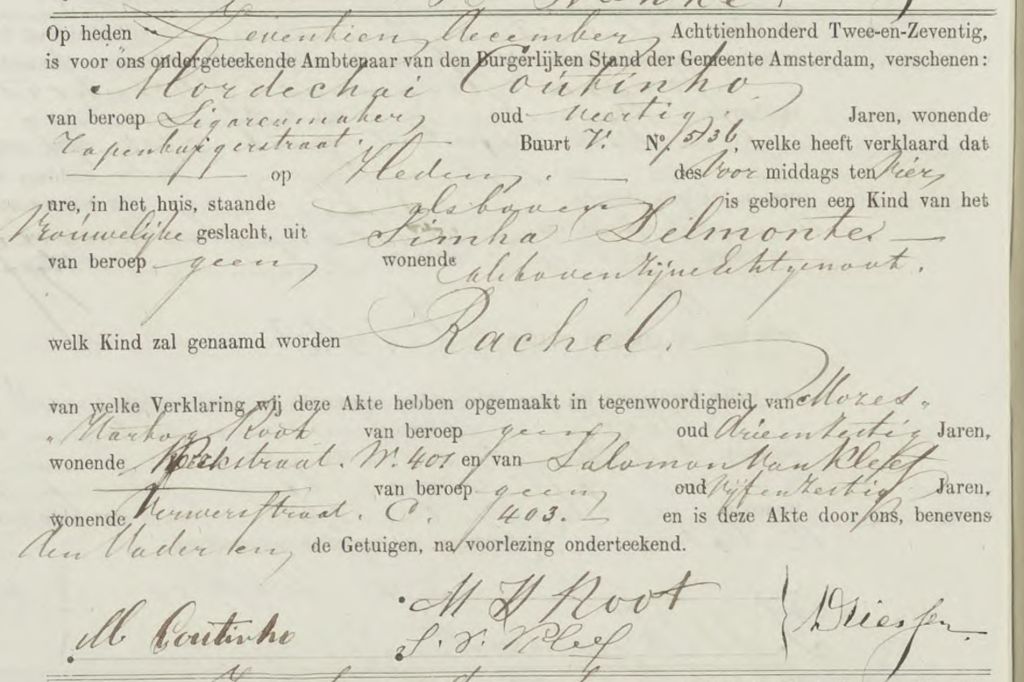 Op heden Zeventien December Achttienhonderd Twee-en-Zeventig,
is voor ons ondergeteekende Ambtenaar van den Burgerlijken Stand der Gemeente Amsterdam, verschenen:
Mordechai Coutinho
van beroep Sigarenmaker oud veertig Jaren, wonende
Uilenburgerstraat. Buurt V. No. 536, welke heeft verklaard dat
op Heden, des Voor middags ten Vier
ure, in het huis, staande alsboven is geboren een Kind van het
Vrouwelijke geslacht, uit Simha Delmonte.
van beroep geen wonende alsboven Zijne Echtgenoot.
welk Kind zal genaamd worden Rachel.
van welke Verklaring wij deze Akte hebben opgemaakt in tegenwoordigheid van Mozes
Hartog Root van beroep geen oud Drieenzestig Jaren,
wonende W. 401 en van Salomon van Kleef
van beroep geen oud Vijfenzestig Jaren,
wonende Verwersstraat. C. 403. en is deze Akte door ons, benevens
den Vader en de Getuigen, na voorlezing onderteekend.
M H Root
M Coutinho S. v. Kleef Driessen